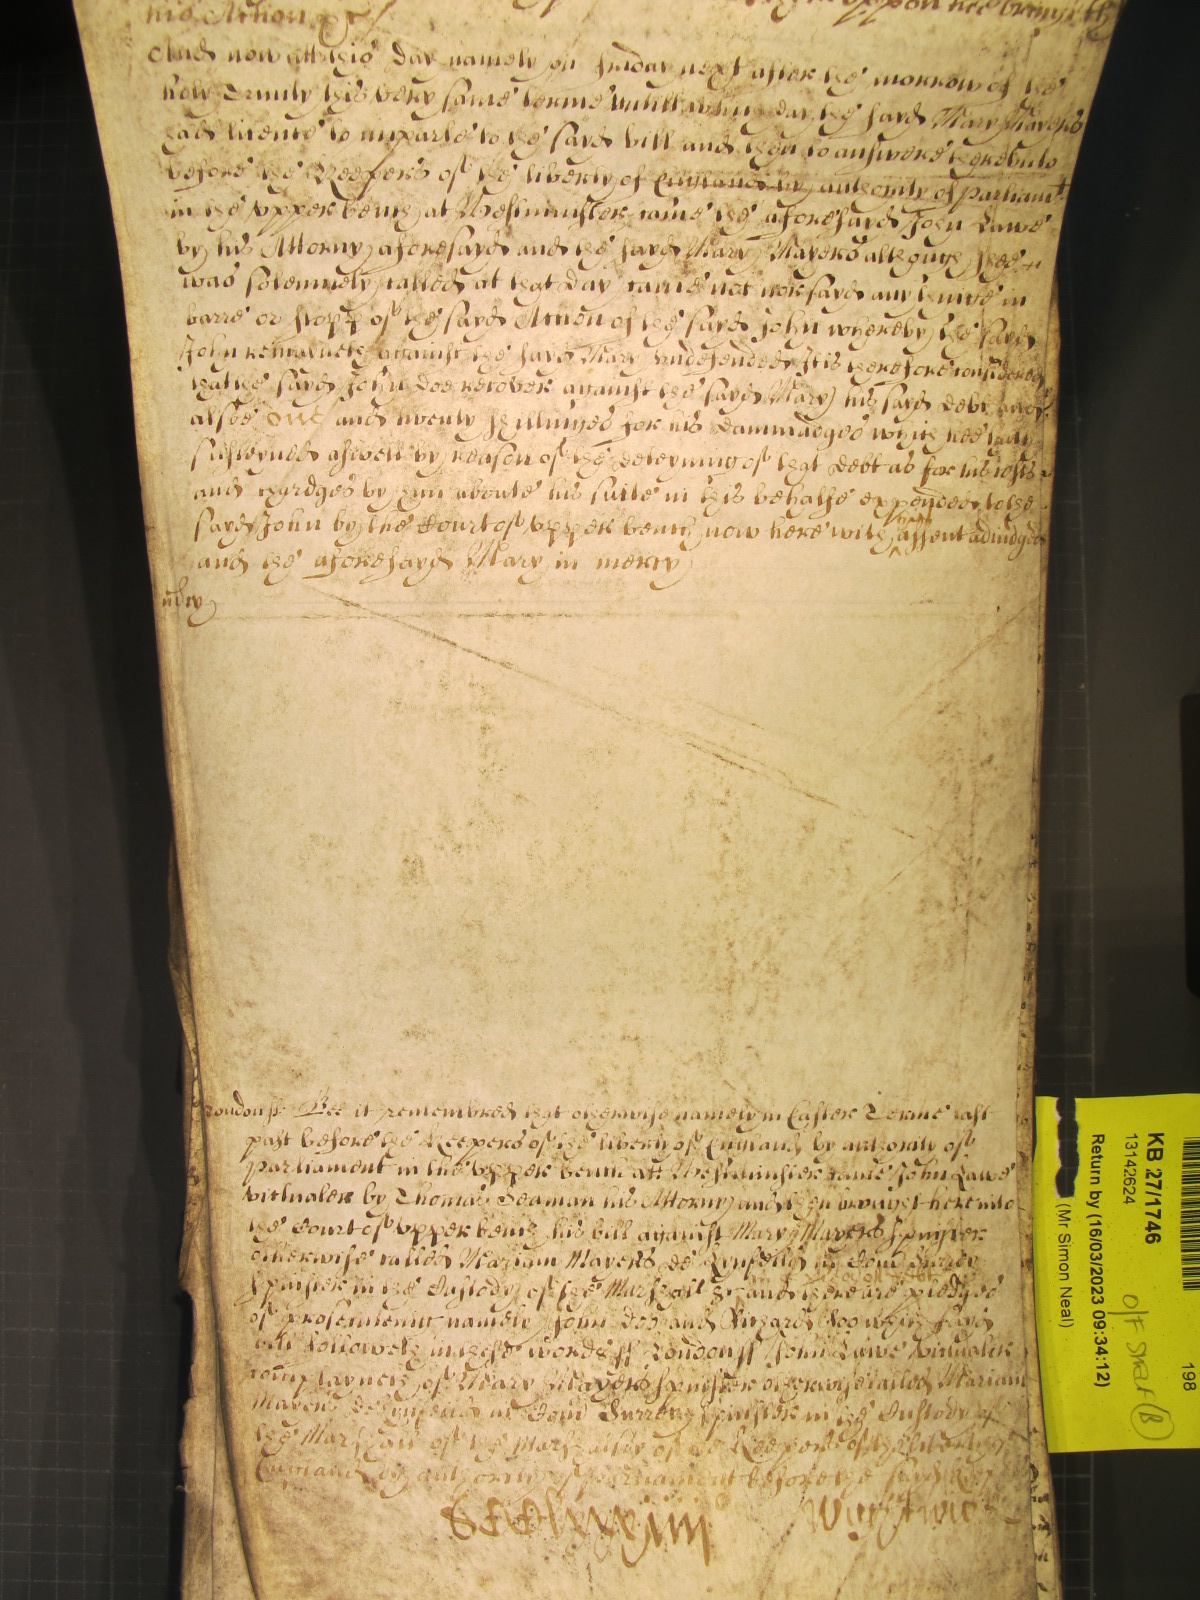 his Action &c
uppon hee bringeth
And now att this day namely on Friday next after the morrow of the
holy Trinity this very same terme untill which day the sayd Mary Mayers
had licence to imparle to the sayd bill and then to answere thereunto
before the Keepers of the liberty of England by authority of parliamt
in the Upper bench at Westminster came the aforesayd John Lawe
by his Attorny aforesayd and the sayd Mary Mayers although shee
was solemnely called at that day came not nor sayd any thinge in
barre or stopp of the sayd Action of the sayd John whereby the sayd
John remayneth against the sayd Mary undefended It is therefore considered
that the sayd John doe recover against the sayd Mary his sayd debt and
alsoe one and twenty shillinges for his dammadges which hee hath
susteyned aswell by reason of the deteyning of that debt as for his costs
and chardges by him aboute his suite in this behalfe expended to the
sayd John by the Court of Upper bench now here with his assent adiudged
and the aforesayd Mary in mercy
London ss Bee it remembred that otherwise namely in Easter Terme last
past before the Keepers of the liberty of England by authority of
parliament in the Upper bench att Westminster came John Lawe
victualer by Thomas Seaman his Attorny and then brought here into
the Court of Upper bench his bill against Mary Mayers spinster
otherwise called Mariam Mayers de in Com Surrey
spinster in the Custody of the Marshall &c and there are pledges
of prosecuting namely John Doo and Richard Roo which sayd
bill followeth in these words ss London ss John Lawe victualer
complayneth of Mary Mayers spinster otherwise called Mariam
Mayers de in Com Surrey spinster in the Custody of
the Marshall of the Marshalsey of the Keepers of the liberty of
England by authority of parliament before the sayd
Wightwick
KB 27/1746
13142624
198
Return by (16/03/2023 09:34:12)
(Mr Simon Neal)
B